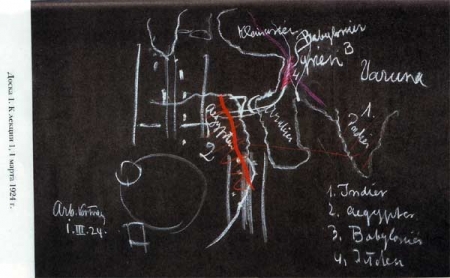 Доска 1. К лекции 1, 1 марта 1924 г.
Kleinasien
Babylonier
3
Syrien
4
Varuna
1.
Inder
Aegypter
2
Arabien
1. Indier
2. Aegypter
3. Babylonier
4. Juden
1.III.24.